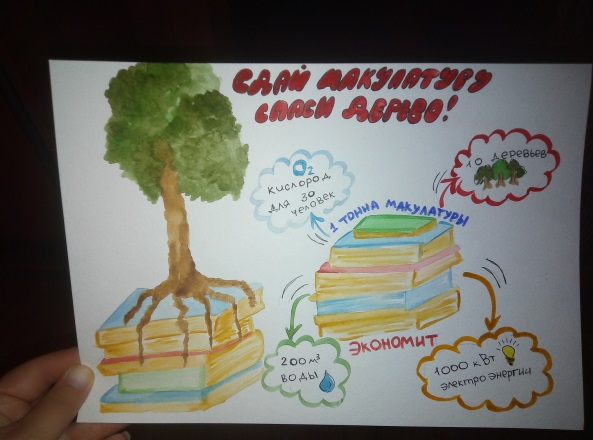 СДАЙ МАКУЛАТУРУ
СПАСИ ДЕРЕВО!
O2
кислород
для 30
человек
10 деревьев
1 ТОННА МАКУЛАТУРЫ
ЭКОНОМИТ
200 м³
воды
1000 кВт
электроэнергии